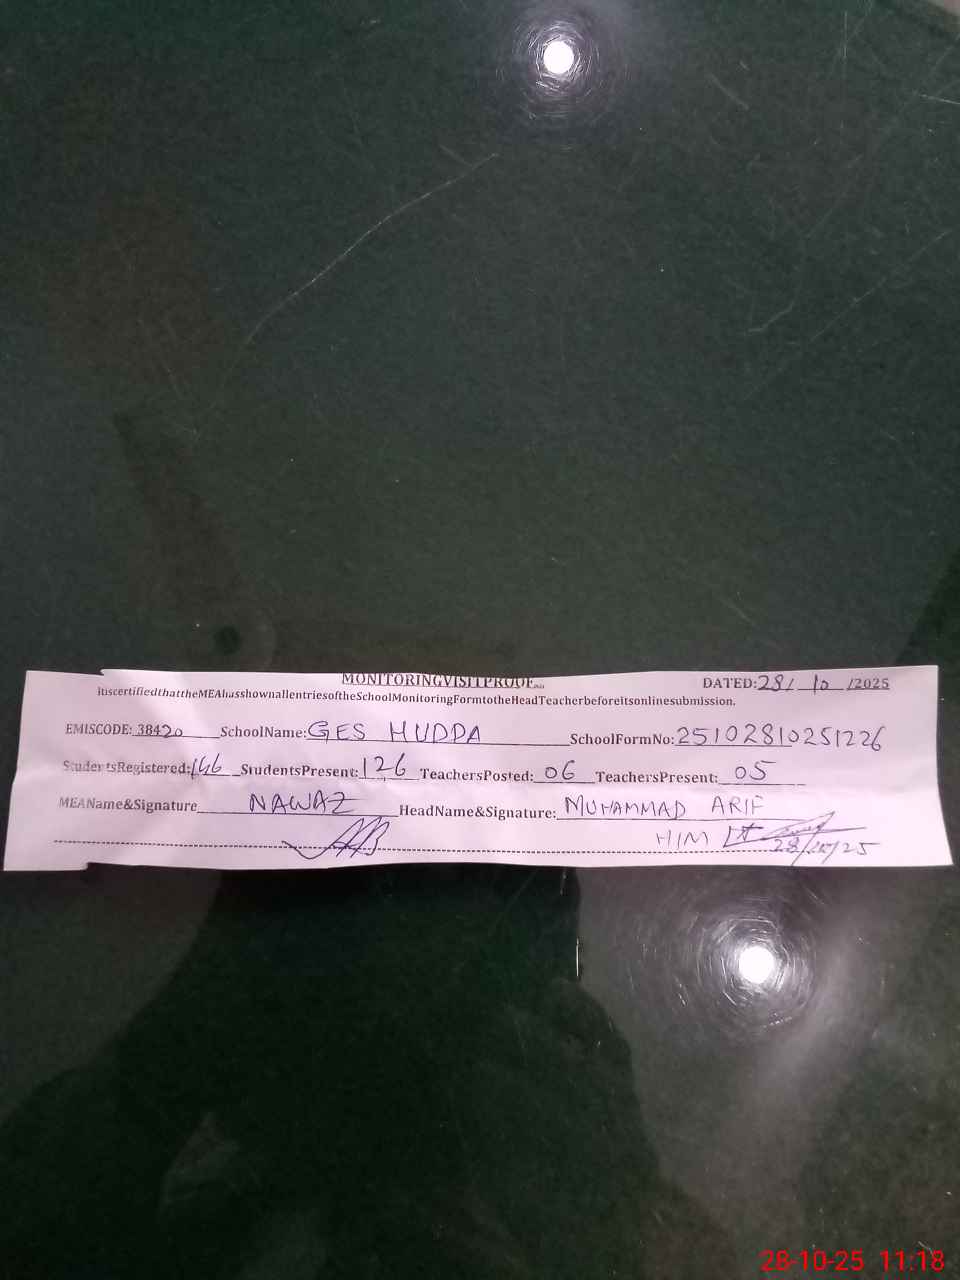 MONITORINGVISITPROOF
DATED:28/ 10 /2025
ItiscertifiedthattheMEAhasshownallentriesoftheSchoolMonitoringFormtotheHeadTeacherbeforeitsonlinesubmission.
EMISCODE: 38420 SchoolName: GES HUDDA SchoolFormNo: 25102810251226
StudentsRegistered: 146 StudentsPresent: 126 TeachersPosted: 06 TeachersPresent: 05
MEAName&Signature NAWAZ HeadName&Signature: MUHAMMAD ARIF
28/10/25
28-10-25 11:18